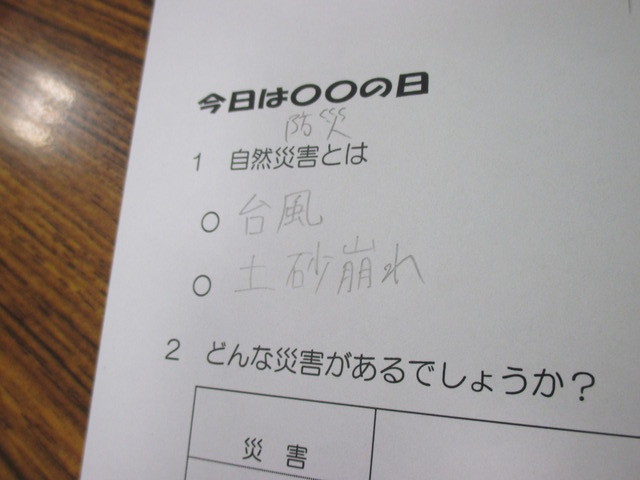 今日は〇〇の日
防災
1 自然災害とは
○ 台風
○ 土砂崩れ
2 どんな災害があるでしょうか？
災 害